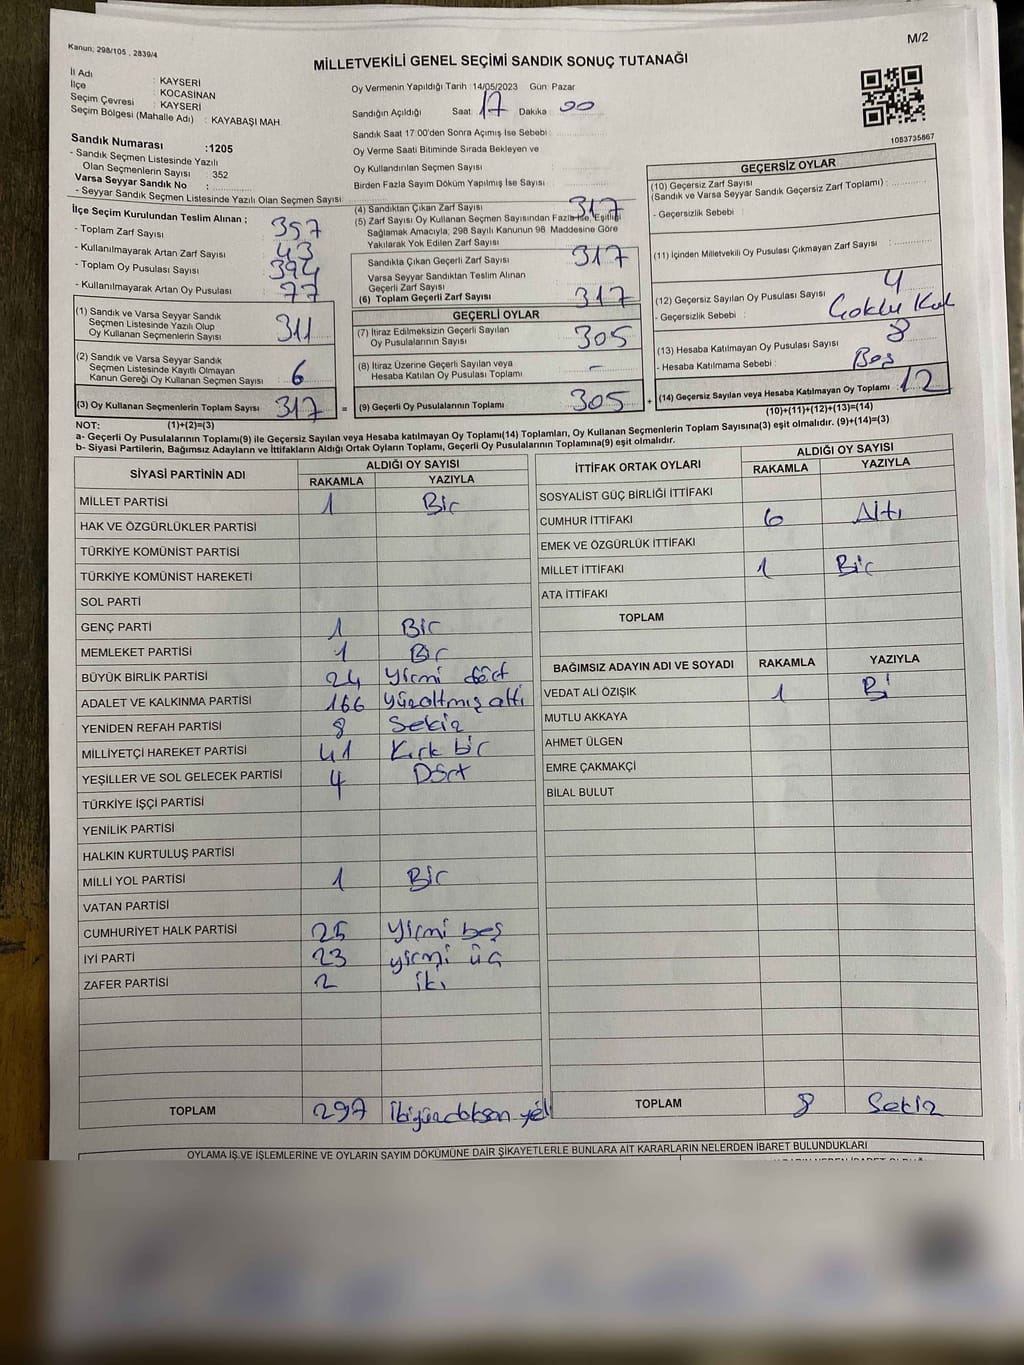 Kanun; 298/105 , 2839/4
M/2
MİLLETVEKİLİ GENEL SEÇİMİ SANDIK SONUÇ TUTANAĞI
İl Adı : KAYSERİ
İlçe : KOCASİNAN
Seçim Çevresi : KAYSERİ
Seçim Bölgesi (Mahalle Adı) : KAYABAŞI MAH.
Sandık Numarası :1205
- Sandık Seçmen Listesinde Yazılı
Olan Seçmenlerin Sayısı : 352
Varsa Seyyar Sandık No :
- Seyyar Sandık Seçmen Listesinde Yazılı Olan Seçmen Sayısı
Oy Vermenin Yapıldığı Tarih :14/05/2023 Gün: Pazar
Sandığın Açıldığı Saat 17 Dakika 00
Sandık Saat 17:00'den Sonra Açılmış İse Sebebi :
Oy Verme Saati Bitiminde Sırada Bekleyen ve
Oy Kullandırılan Seçmen Sayısı
Birden Fazla Sayım Döküm Yapılmış İse Sayısı
1083735867
İlçe Seçim Kurulundan Teslim Alınan ;
- Toplam Zarf Sayısı : 357
- Kullanılmayarak Artan Zarf Sayısı : 43
- Toplam Oy Pusulası Sayısı : 394
- Kullanılmayarak Artan Oy Pusulası : 77
(1) Sandık ve Varsa Seyyar Sandık
Seçmen Listesinde Yazılı Olup
Oy Kullanan Seçmenlerin Sayısı 311
(2) Sandık ve Varsa Seyyar Sandık
Seçmen Listesinde Kayıtlı Olmayan
Kanun Gereği Oy Kullanan Seçmen Sayısı 6
(3) Oy Kullanan Seçmenlerin Toplam Sayısı 317
(1)+(2)=(3)
(4) Sandıktan Çıkan Zarf Sayısı 317
(5) Zarf Sayısı Oy Kullanan Seçmen Sayısından Fazla İse, Eşitliği
Sağlamak Amacıyla; 298 Sayılı Kanunun 98. Maddesine Göre
Yakılarak Yok Edilen Zarf Sayısı
Sandıkta Çıkan Geçerli Zarf Sayısı 317
Varsa Seyyar Sandıktan Teslim Alınan
Geçerli Zarf Sayısı
(6) Toplam Geçerli Zarf Sayısı 317
GEÇERLİ OYLAR
(7) İtiraz Edilmeksizin Geçerli Sayılan
Oy Pusulalarının Sayısı: 305
(8) İtiraz Üzerine Geçerli Sayılan veya
Hesaba Katılan Oy Pusulası Toplamı -
= (9) Geçerli Oy Pusulalarının Toplamı 305 +
GEÇERSİZ OYLAR
(10) Geçersiz Zarf Sayısı
(Sandık ve Varsa Seyyar Sandık Geçersiz Zarf Toplamı) :
- Geçersizlik Sebebi :
(11) İçinden Milletvekili Oy Pusulası Çıkmayan Zarf Sayısı :
(12) Geçersiz Sayılan Oy Pusulası Sayısı 4
- Geçersizlik Sebebi :
(13) Hesaba Katılmayan Oy Pusulası Sayısı 8
- Hesaba Katılmama Sebebi : Boş
(14) Geçersiz Sayılan veya Hesaba Katılmayan Oy Toplamı : 12
(10)+(11)+(12)+(13)=(14)
NOT:
a- Geçerli Oy Pusulalarının Toplamı(9) ile Geçersiz Sayılan veya Hesaba katılmayan Oy Toplamı(14) Toplamları, Oy Kullanan Seçmenlerin Toplam Sayısına(3) eşit olmalıdır. (9)+(14)=(3)
b- Siyasi Partilerin, Bağımsız Adayların ve İttifakların Aldığı Ortak Oyların Toplamı, Geçerli Oy Pusulalarının Toplamına(9) eşit olmalıdır.
SİYASİ PARTİNİN ADI ALDIĞI OY SAYISI
RAKAMLA YAZIYLA
MİLLET PARTİSİ 1 Bir
HAK VE ÖZGÜRLÜKLER PARTİSİ
TÜRKİYE KOMÜNİST PARTİSİ
TÜRKİYE KOMÜNİST HAREKETİ
SOL PARTİ
GENÇ PARTİ 1 Bir
MEMLEKET PARTİSİ 1 Bir
BÜYÜK BİRLİK PARTİSİ 24 yirmi dört
ADALET VE KALKINMA PARTİSİ 166 yüzaltmış altı
YENİDEN REFAH PARTİSİ 8 Sekiz
MİLLİYETÇİ HAREKET PARTİSİ 41 Kırk bir
YEŞİLLER VE SOL GELECEK PARTİSİ 4 Dört
TÜRKİYE İŞÇİ PARTİSİ
YENİLİK PARTİSİ
HALKIN KURTULUŞ PARTİSİ
MİLLİ YOL PARTİSİ 1 Bir
VATAN PARTİSİ
CUMHURİYET HALK PARTİSİ 25 yirmi beş
İYİ PARTİ 23 yirmi üç
ZAFER PARTİSİ 2 iki
TOPLAM 297
İTTİFAK ORTAK OYLARI ALDIĞI OY SAYISI
RAKAMLA YAZIYLA
SOSYALİST GÜÇ BİRLİĞİ İTTİFAKI
CUMHUR İTTİFAKI 6 Altı
EMEK VE ÖZGÜRLÜK İTTİFAKI
MİLLET İTTİFAKI 1 Bir
ATA İTTİFAKI
TOPLAM
BAĞIMSIZ ADAYIN ADI VE SOYADI RAKAMLA YAZIYLA
VEDAT ALİ ÖZIŞIK 1 Bi
MUTLU AKKAYA
AHMET ÜLGEN
EMRE ÇAKMAKÇİ
BİLAL BULUT
TOPLAM 8 Sekiz
OYLAMA İŞ VE İŞLEMLERİNE VE OYLARIN SAYIM DÖKÜMÜNE DAİR ŞİKAYETLERLE BUNLARA AİT KARARLARIN NELERDEN İBARET BULUNDUKLARI